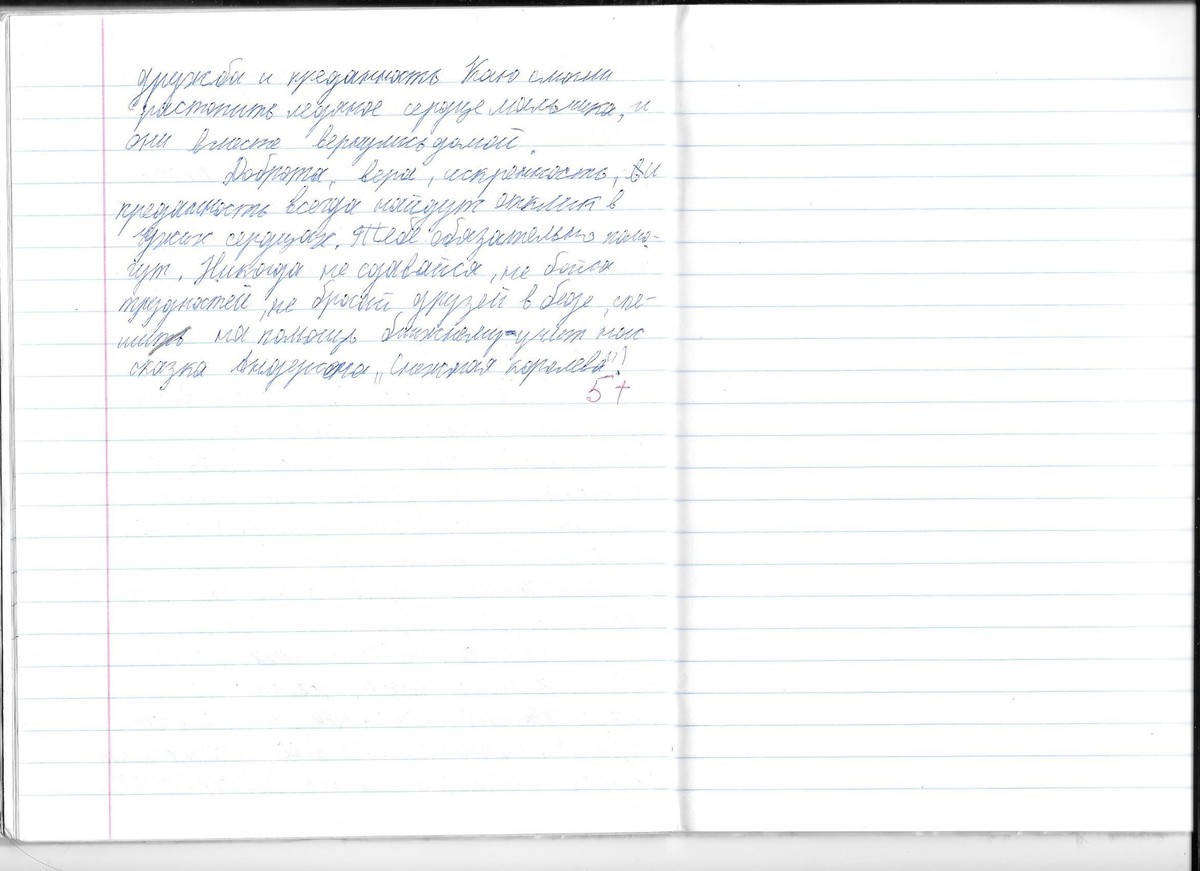 дружба и преданность Каю смогли
растопить ледяное сердце мальчика, и
они вместе вернулись домой.
Доброта, вера, искренность, и
преданность всегда найдут отклик в
чужих сердцах. Тебе обязательно помо-
гут. Никогда не сдавайся, не бойся
трудностей, не бросай друзей в беде, спе-
шить на помощь ближнему-учит нас
сказка Андерсена „Снежная королева"!
5+